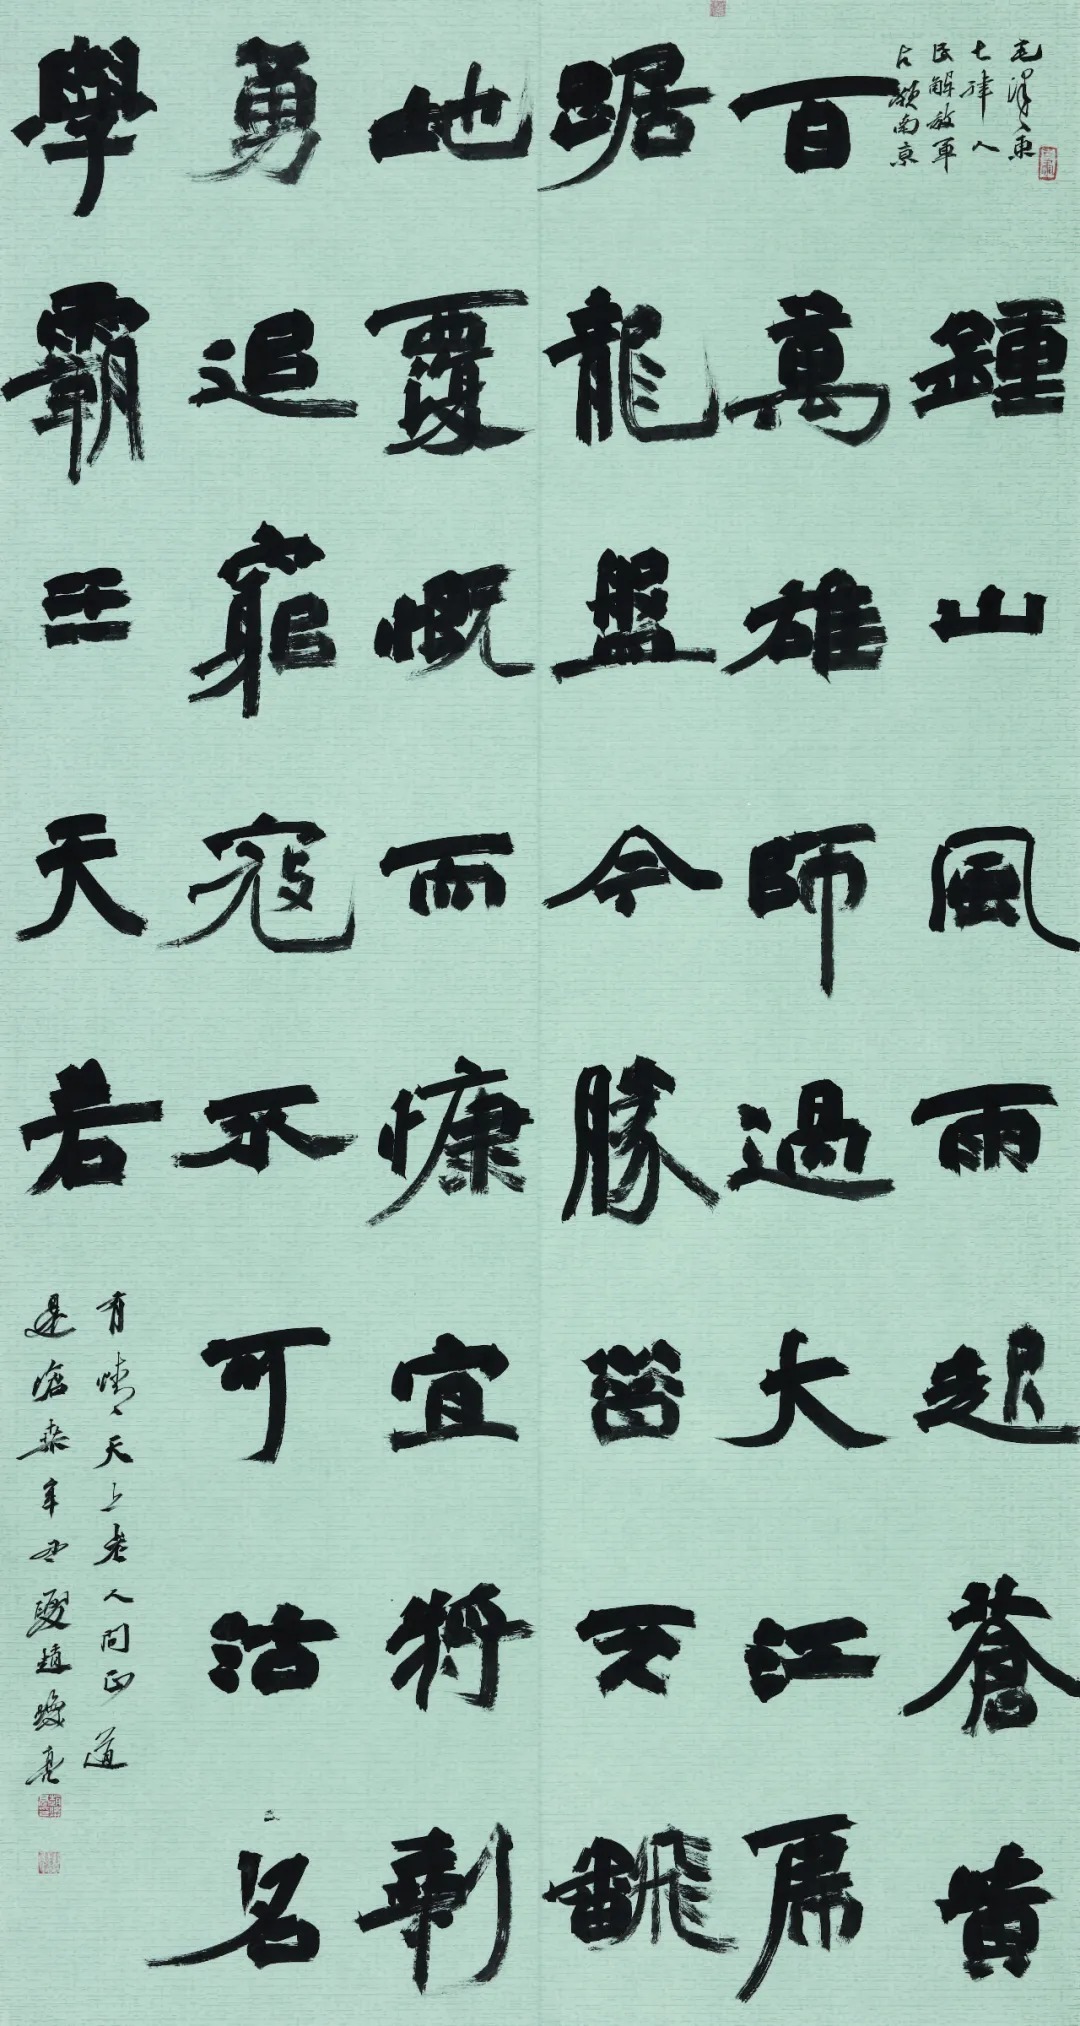 毛澤東
七律人
民解放軍
占領南京
鍾山風雨起蒼黄
百萬雄師過大江虎
踞龍盤今勝昔天翻
地覆慨而慷宜將剩
勇追窮寇不可沽名
學霸王天若
有情天亦老人間正道
是滄桑辛丑夏趙亮